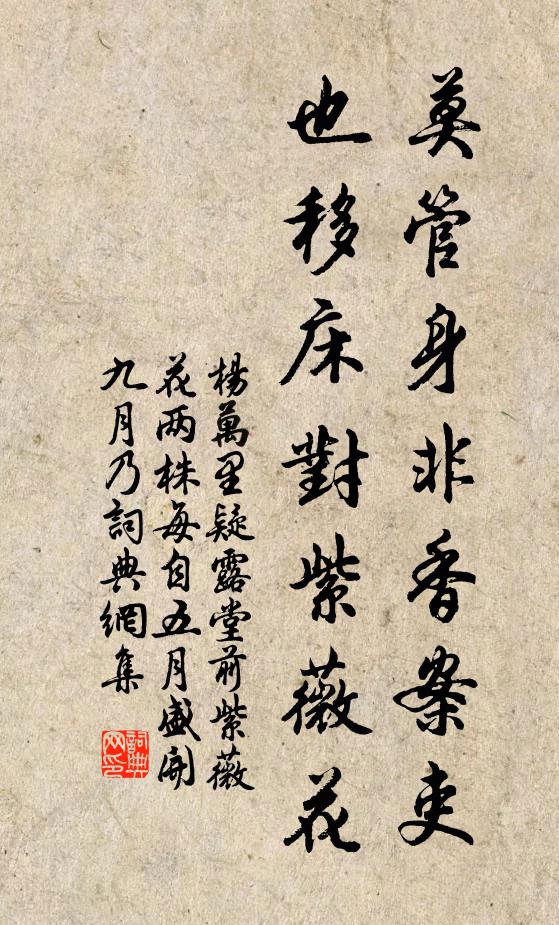 莫管身非香案吏
也移床對紫薇花
楊萬里疑露堂前紫薇
花两株每自五月盛開
九月乃詞典網集
詞典
网印